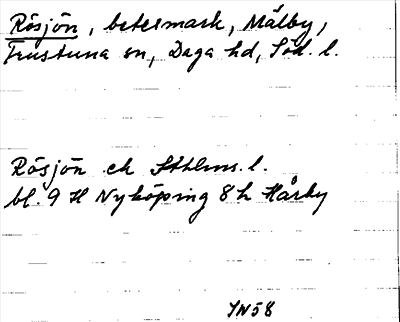 Rösjön, betesmark, Målby,
Frustuna sn, Daga hd, Söd. l.
Rösjön ek Sthlms. l.
bl. 9 H Nyköping 8h Hårby
YN58